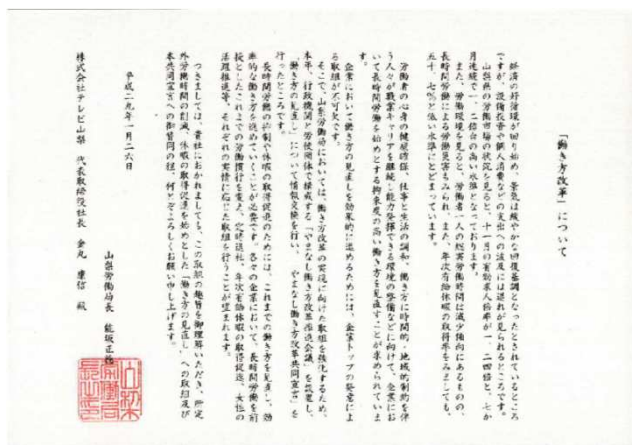 「働き方改革」について
経済の好循環が回り始め、景気は緩やかな回復基調となったとされているところ
ですが、設備投資や個人消費などの支出への波及には遅れが見られるところです。
山梨県の労働市場の状況を見ると、十一月の有効求人倍率が一、二四倍と、七か
月連続で一、二倍台の高い水準となっております。
また、労働環境を見ると、労働者一人の総実労働時間は減少傾向にあるものの、
長時間労働による労働災害もみられ、また、年次有給休暇の取得率をみましても、
五十、七％と低い水準にとどまっています。
労働者の心身の健康確保、仕事と生活の調和、働き方に時間的・地域的制約を伴
う人々が職業キャリアを継続し能力発揮できる環境の整備などに向けて、企業にお
いて長時間労働を始めとする拘束度の高い働き方を見直すことが求められていま
す。
企業において働き方の見直しを効果的に進めるためには、企業トップの発意によ
る取組が不可欠です。
そこで、山梨労働局においては、働き方改革の実現に向けた取組を強化するため、
本年、行政機関と労使団体で構成する「やまなし働き方改革推進会議」を設置し、
「働き方の見直し」について情報交換を行い、「やまなし働き方改革共同宣言」を
行ったところです。
長時間労働の抑制や休暇の取得促進のためには、これまでの働き方を見直し、効
率的な働き方を進めていくことが必要です。各々の企業において、長時間労働を前
提としたこれまでの労働慣行を変え、定時退社、年次有給休暇の取得促進、女性の
活躍推進等、それぞれの実情に応じた取組を行うことが望まれます。
つきましては、貴社におかれましても、この取組の趣旨を御理解いただき、所定
外労働時間の削減、休暇の取得促進を始めとした「働き方の見直し」への取組及び
本共同宣言への御賛同の程、何とぞよろしくお願い申し上げます。
平成二九年一月二六日
山梨労働局長 能坂正徳
株式会社テレビ山梨 代表取締役社長 金丸 康信 殿
山梨
労働局
長之印